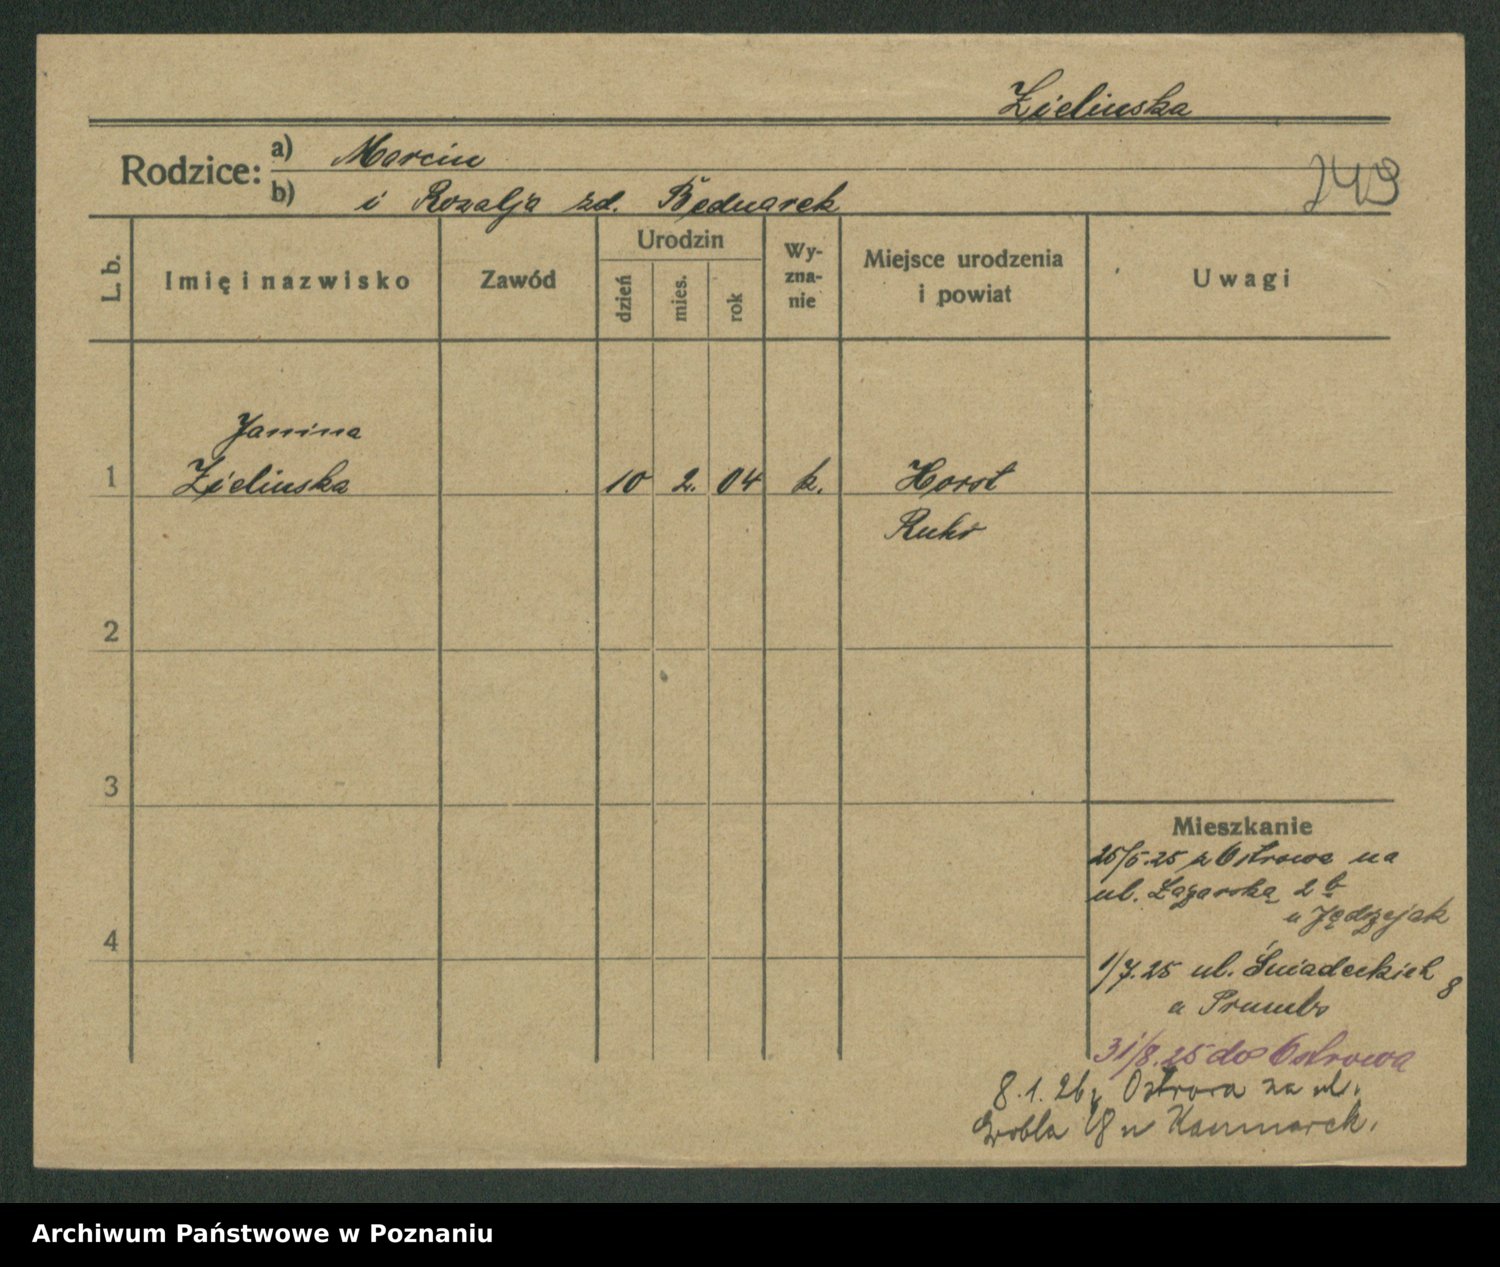 Zielinska
Rodzice: a) Marcin
b) i Rozalja zd. Bednarek
749
L. b.
Imię i nazwisko
Zawód
Urodzin
dzień
mies.
rok
Wy-
zna-
nie
Miejsce urodzenia
i powiat
Uwagi
Janina
1 Zielinska 10 2. 04 k. Horst
Ruhr
2
3
4
Mieszkanie
25/5.25 z Ostrowa na
ul. Łazarską 2 b
u Jędrzejak
1/7.25 ul. Śniadeckich 8
u
31/8.25 do Ostrowa
8.1.26 z Ostrowa na ul.
Grobla 18 u Kaczmarek.
Archiwum Państwowe w Poznaniu